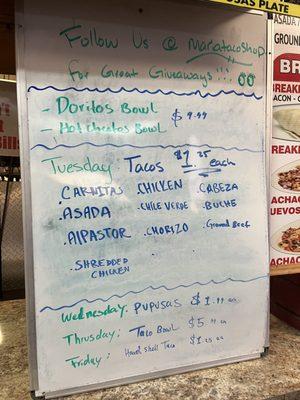 USAS PLATE
Follow Us @ MariatacoShop
for Great Giveaways!!!
- Doritos Bowl
- Hot Cheetos Bowl
$9.99
Tuesday Tacos $1.25 each
.CARNITAS .CHICKEN .CABEZA
.ASADA .CHILE VERDE .BUCHE
.AlPASTOR .CHORIZO .Ground Beef
.SHREDDED
CHICKEN
Wednesday: PUPUSAS $1.99 ea
Thrusday: Taco Bowl $5.99 ea
Friday: Hard Shell Taco $1.25 ea
ASADA
GROUND
BR
BREAKF
BACON - C
BREAKF
ACHAC
UEVOS
ACHAC